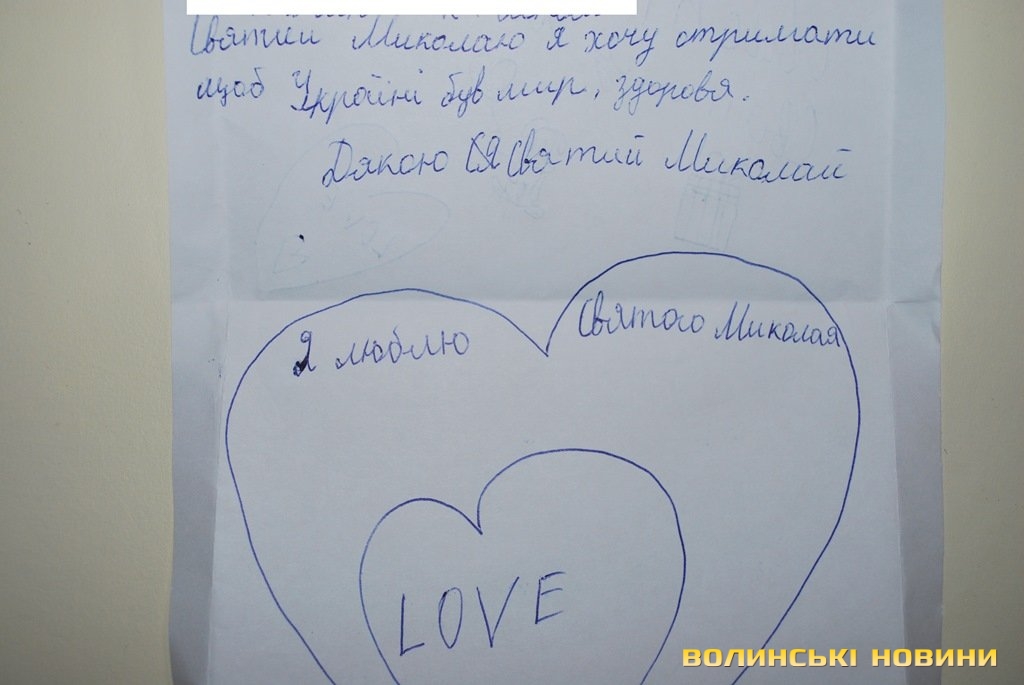 Святий Миколаю я хочу отримати
щоб Україні був мир, здоровя.
Дякою Святий Миколай
Я люблю Святого Миколая
LOVE
ВОЛИНСЬКІ НОВИНИ